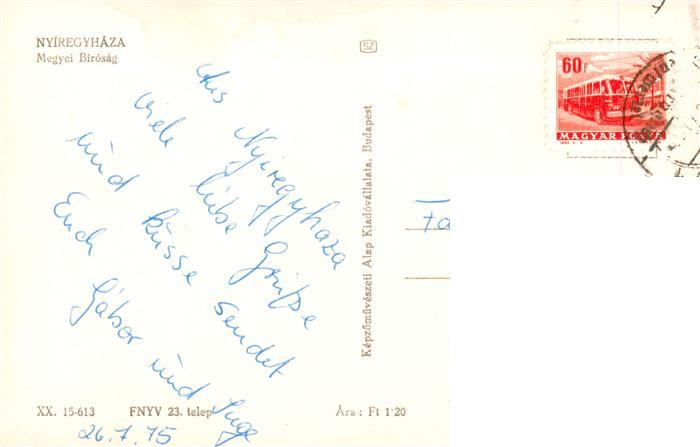 NYÍREGYHÁZA
Megyei Bíróság
SZ
60f
MAGYAR POSTA
Aus Nyiregyhaza
viele liebe Grüße
und Küsse sendet
Euch Gábor und Inge
26.7.75
Képzőművészeti Alap Kiadóvállalata, Budapest
XX. 15-613 FNYV 23. telep Ára: Ft 1·20